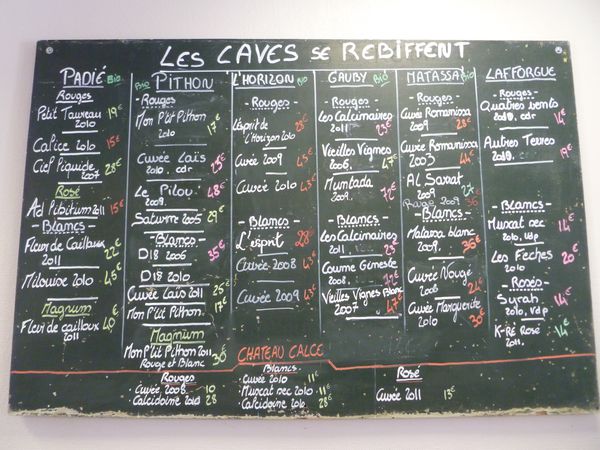 LES CAVES SE REBIFFENT
PADIÉ Bio
Rouges
Petit Taureau 19€
2010
Calice 2010 15€
Ciel Liquide 28€
2007
Rosé
Ad Libitum 2011 15€
Blancs
Fleur de Cailloux 22€
2011
Milouise 2010 45€
Magnum
Fleur de cailloux 40€
2011
Bio PITHON
Rouges
Mon P'tit Pithon 17€
2010
Cuvée Laïs 25€
2010. cdr
Le Pilou 48€
2009
Saturne 2005 29€
Blancs
D18 2006 35€
D18 2010
Cuvée Laïs 2011 25€
Mon P'tit Pithon 17€
Magnium
Mon P'tit Pithon 2011 36€
Rouge et Blanc
L'HORIZON Bio
- Rouges -
L'esprit de 25€
l'Horizon 2010
Cuvée 2009 45€
Cuvée 2010 43€
- Blancs -
L'esprit 28€
Cuvée 2008 43€
Cuvée 2009 43€
GAUBY Bio
- Rouges -
Les Calcinaires
2011 23€
Vieilles Vignes
2006 47€
Muntada 72€
- Blancs -
Les Calcinaires
2011 23€
Coume Gineste
2008
Vieilles Vignes Blanc
2007 47€
MATASSA Bio
- Rouges -
Cuvée Romanissa
2009 28€
Cuvée Romanissa
2003 44€
Al Sarrat
2009 27€
Rouge 2009 36€
- Blancs -
Matassa blanc
2009. 36€
Cuvée Nougé
2008 24€
Cuvée Marguerite
2010 30€
LAFFORGUE
- Rouges -
Quatres vents
2010. cdr 14€
Autres Terres
2010. 19€
- Blancs -
Muscat sec 14€
2010. Vdp
Les Fèches 20€
2010
- Rosés -
Syrah 14€
2010, Vdp
K-Ré Rosé 14€
2011.
CHATEAU CALCE
Rouges
Cuvée 2008 10
Calcidoine 2010 28
Blancs
Cuvée 2010 11€
Muscat sec 2010 11€
Calcidoine 2010 28€
Rosé
Cuvée 2011 13€